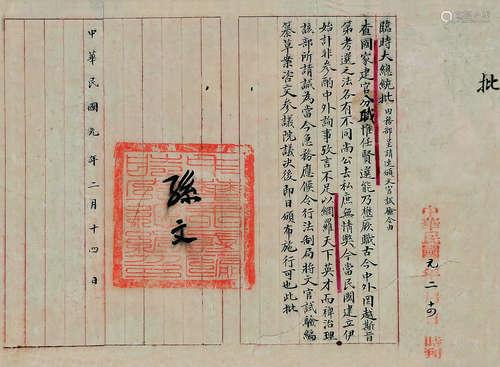 批
臨時大總統批 内務部呈請速頒文官試驗令由
查國家建官分職惟任賢選能乃懋厥職古今中外罔越斯旨
第考選之法各有不同尚公去私庶無情弊今當民國建立伊
始計非參酌中外詢事攷言不足以網羅天下英才而裨治理
該部所請誠為當今急務應候令行法制局將文官試驗編
纂草案咨交參議院議決後即日頒布施行可也此批
孫文
中華民國元年二月十四日
中華民國元 二 十四